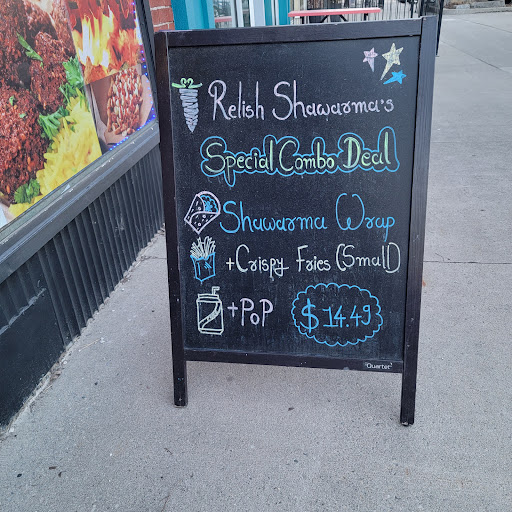 Relish Shawarma's
Special Combo Deal
Shawarma Wrap
+Crispy Fries (Small)
+PoP
$14.49
Quartet